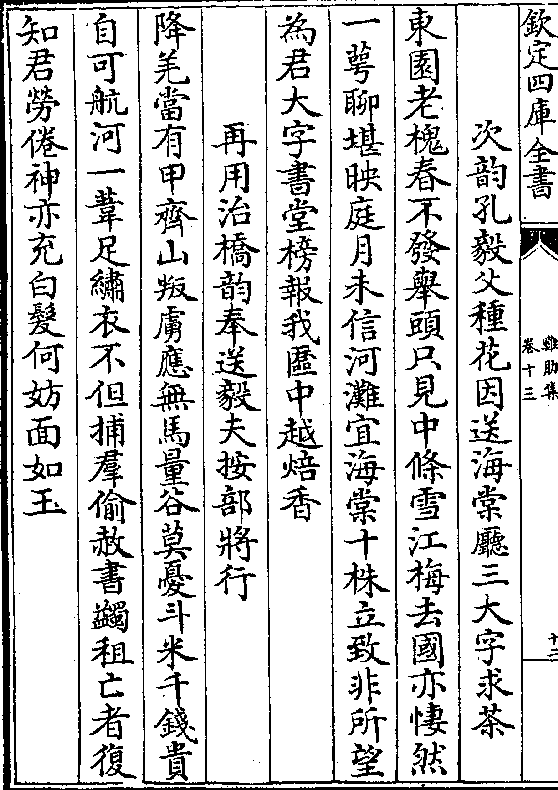 欽定四庫全書
雞肋集
卷十三
十二
次韵孔毅父種花因送海棠廳三大字求茶
東園老槐春不發舉頭只見中條雪江梅去國亦悽然
一萼聊堪映庭月未信河灘宜海棠十株立致非所望
為君大字書堂榜報我匳中越焙香
再用治橋韵奉送毅夫按部將行
降羌當有甲齊山叛虜應無馬量谷莫憂斗米千錢貴
自可航河一葦足繡衣不但捕羣偷赦書蠲租亡者復
知君勞倦神亦充白髮何妨面如玉